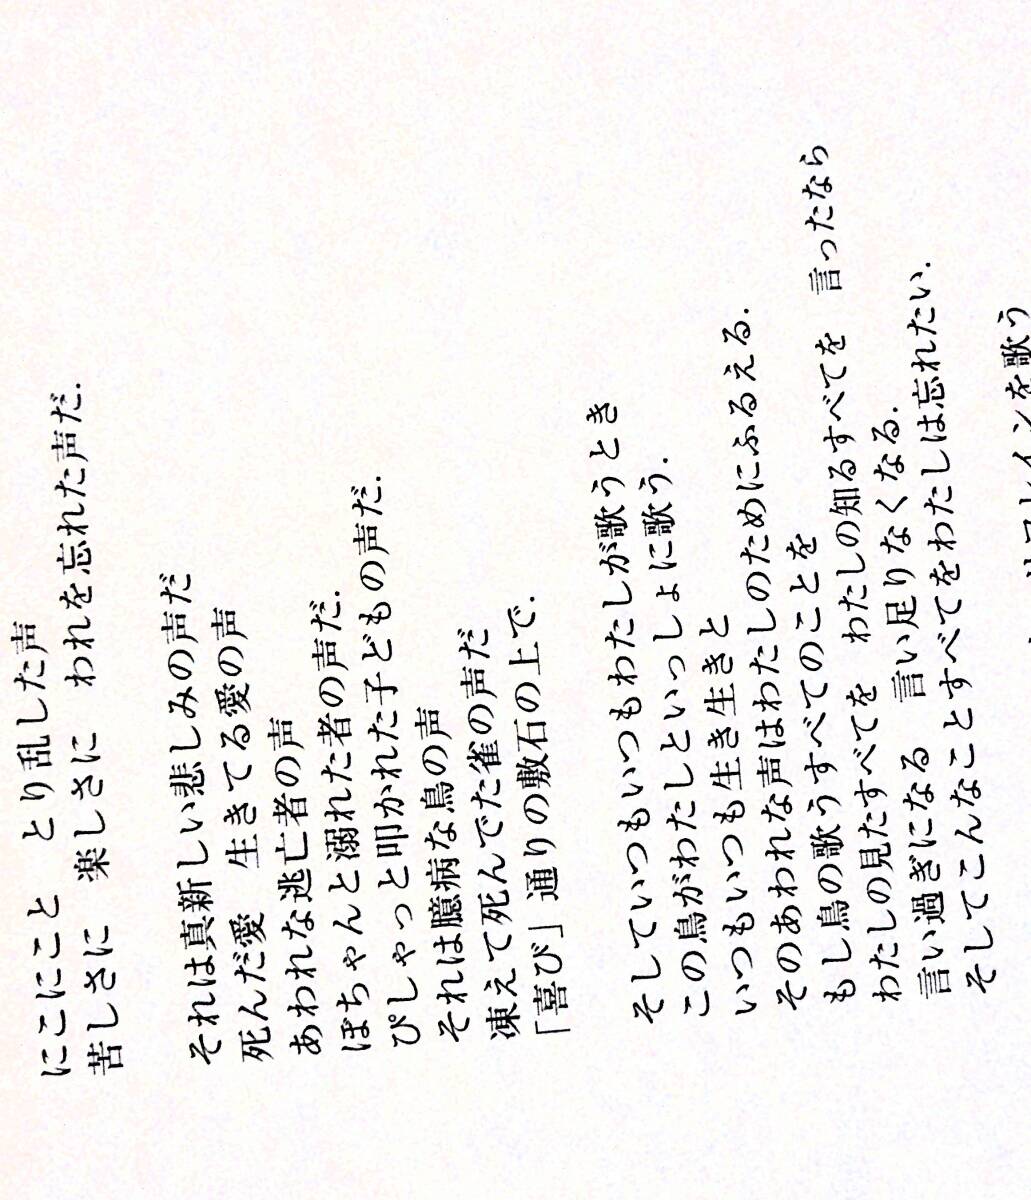 にこにこと　とり乱した声
苦しさに　楽しさに　われを忘れた声だ.
それは真新しい悲しみの声だ
死んだ愛　生きてる愛の声
あわれな逃亡者の声
ぼちゃんと溺れた者の声だ.
ぴしゃっと叩かれた子どもの声だ.
それは臆病な鳥の声
凍えて死んでた雀の声だ
「喜び」通りの敷石の上で.
そしていつもいつもわたしが歌うとき
この鳥がわたしといっしょに歌う.
いつもいつも生き生きと
そのあわれな声はわたしのためにふるえる.
もし鳥の歌うすべてのことを
わたしの見たすべてを　わたしの知るすべてを　言ったなら
言い過ぎになる　言い足りなくなる.
そしてこんなことすべてをわたしは忘れたい.
レインを歌う